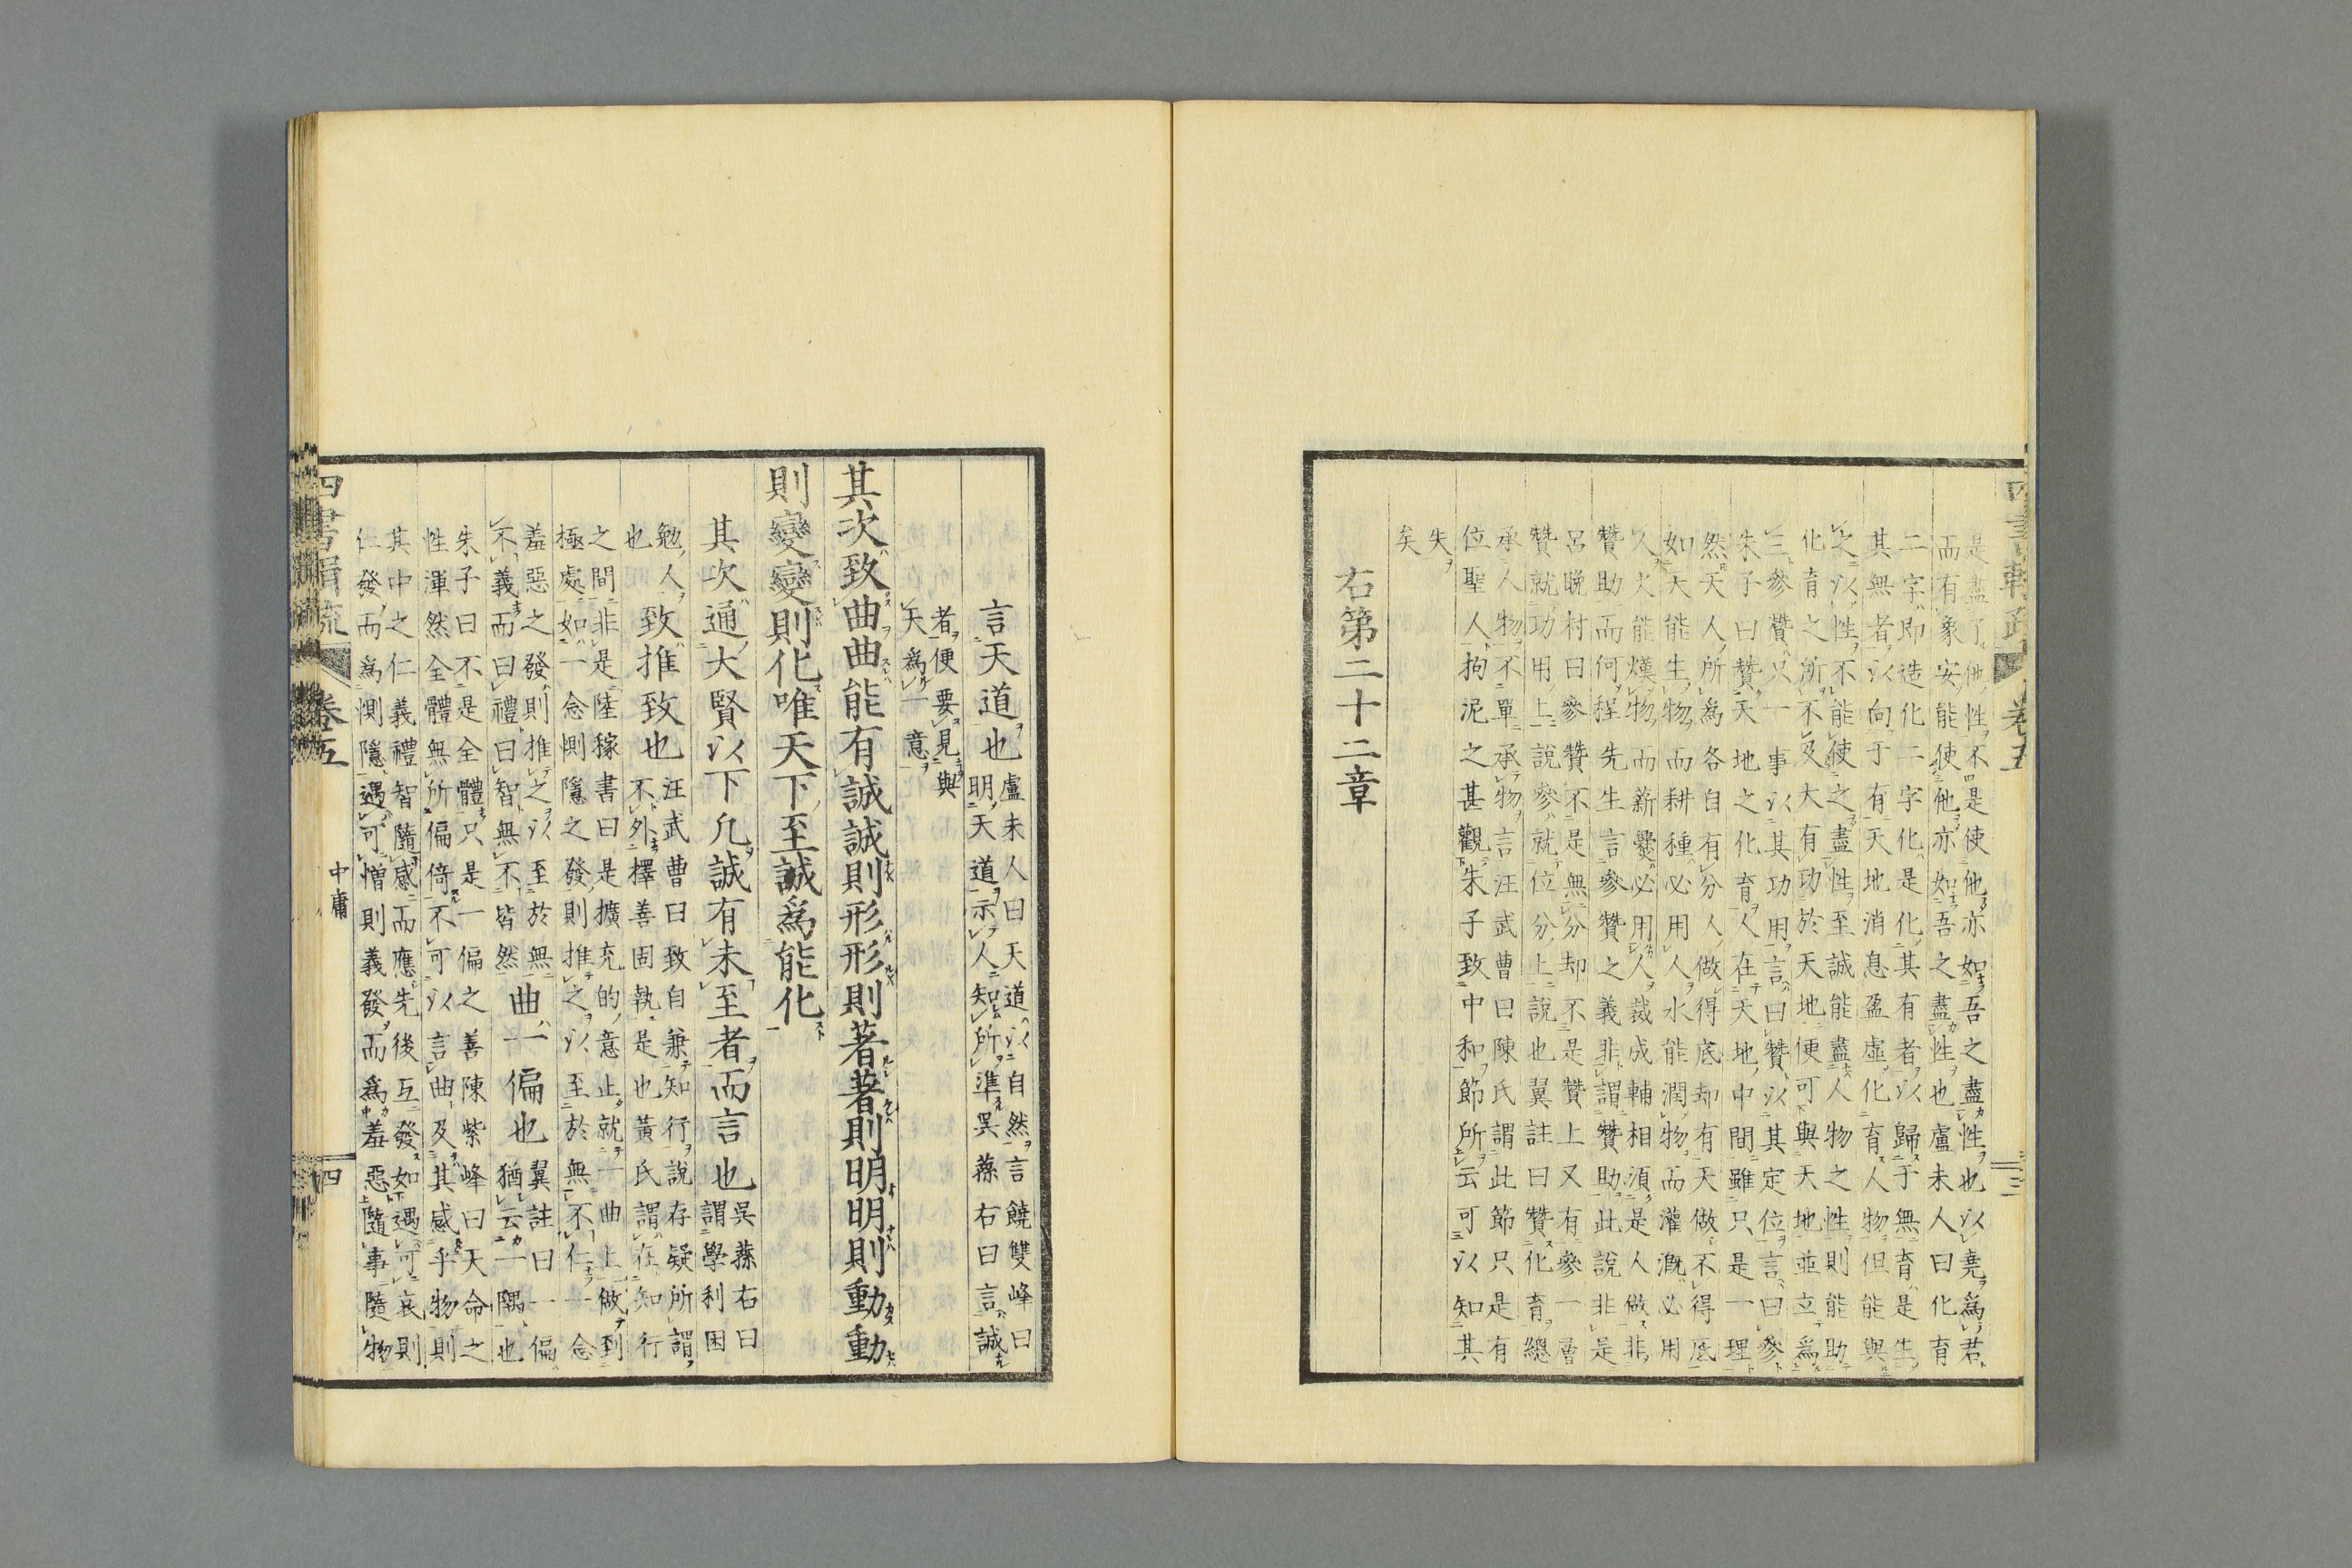 四書輯疏 卷五 三
是盡了他性不是使他亦如吾之盡性也以堯爲君
而有象安能使他亦如吾之盡性也盧未人曰化育
二字即造化二字化是化其有者以歸于無育是生
其無者以向于有天地消息盈虛化育人物但能與
之以性不能使之盡性至誠能盡人物之性則能助
化育之所不及大有功於天地便可與天地並立爲
三參贊只一事以其功用言曰贊以其定位言曰參
朱子曰贊天地之化育人在天地中間雖只是一理
然天人所爲各自有分人做得底却有天做不得底
如天能生物而耕種必用人水能潤物而灌漑必用
人火能熯物而薪爨必用人裁成輔相須是人做非
贊助而何程先生言參贊之義非謂贊助此說非是
呂晚村曰參贊不是無分却不是贊上又有參一層
贊就功用上說參就位分上說也翼註曰贊化育總
承人物不單承物言汪武曹曰陳氏謂此節只是有
位聖人拘泥之甚觀朱子致中和節所云可以知其
失
矣
右第二十二章
言天道也
盧未人曰天道以自然言饒雙峰曰
明天道示人知所準吳蓀右曰言誠
者便要見與
天爲一意
其次致曲曲能有誠誠則形形則著著則明明則動動
則變變則化唯天下至誠爲能化
其次通大賢以下凡誠有未至者而言也
吳蓀右曰
謂學利困
勉人
也
致推致也
汪武曹曰致自兼知行說存疑所謂
不外擇善固執是也黃氏謂在知行
之間非是陸稼書曰是擴充的意止就一曲上做到
極處如一念惻隱之發則推之以至於無不仁一念
羞惡之發則推之以至於無
不義而曰禮曰智無不皆然
曲一偏也
翼註曰一偏
猶云一隅也
朱子曰不是全體只是一偏之善陳紫峰曰天命之
性渾然全體無所偏倚不可以言曲及其感乎物則
其中之仁義禮智隨感而應先後互發如遇可哀則
仁發而爲惻隱遇可憎則義發而爲羞惡隨事隨物
四書輯疏 卷五 中庸 四